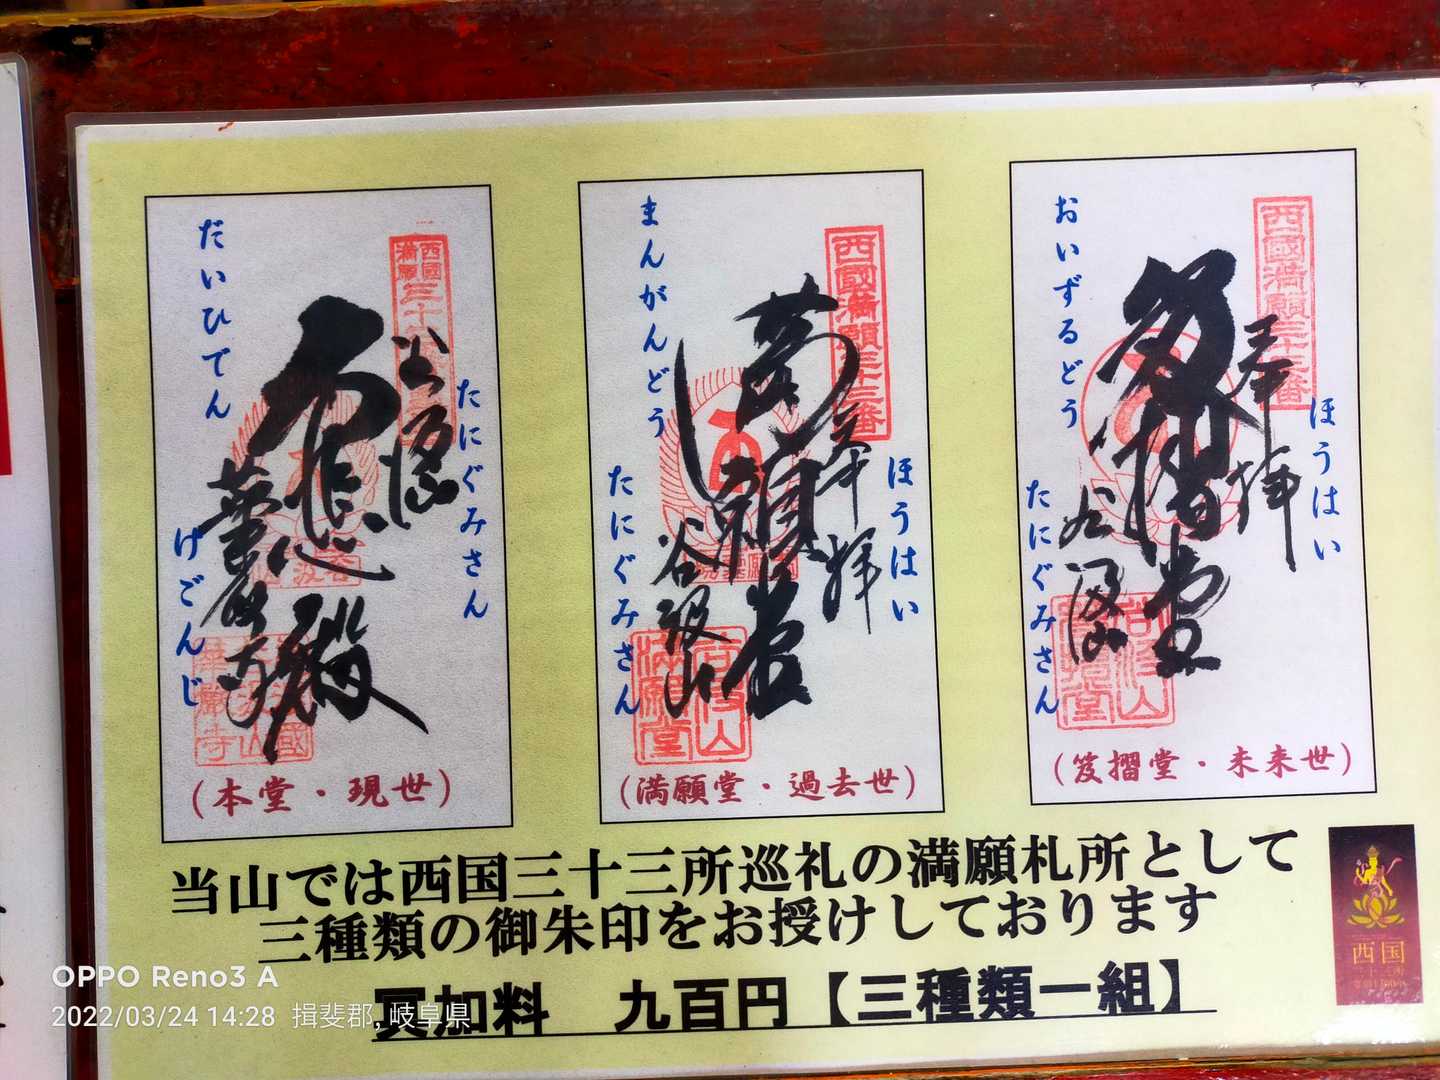 だいひでん
たにぐみさん
げごんじ
谷汲山
華厳寺
(本堂・現世)
まんがんどう
西國満願三十三番
ほうはい
奉拝
満願堂
たにぐみさん
谷汲山
(満願堂・過去世)
おいずるどう
西國満願三十三番
ほうはい
奉拝
笈摺堂
たにぐみさん
谷汲山
(笈摺堂・未来世)
当山では西国三十三所巡礼の満願札所として
三種類の御朱印をお授けしております
冥加料　九百円【三種類一組】
西国
OPPO Reno3 A
2022/03/24 14:28 揖斐郡, 岐阜県